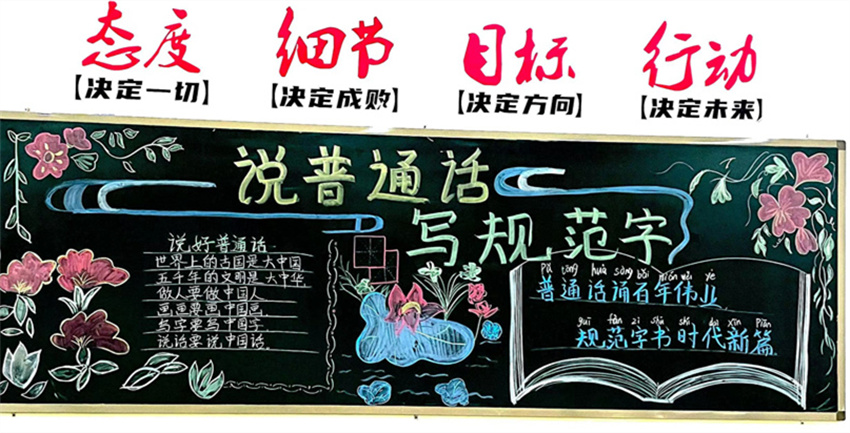 态度
【决定一切】
细节
【决定成败】
目标
【决定方向】
行动
【决定未来】
说普通话
写规范字
说好普通话
世界上的古国是大中国
五千年的文明是大中华
做人要做中国人
画画要画中国画
写字要写中国字
说话要说中国话
pǔ tōng huà sòng bǎi nián wěi yè
普通话诵百年伟业
guī fàn zì shū shí dài xīn piān
规范字书时代新篇